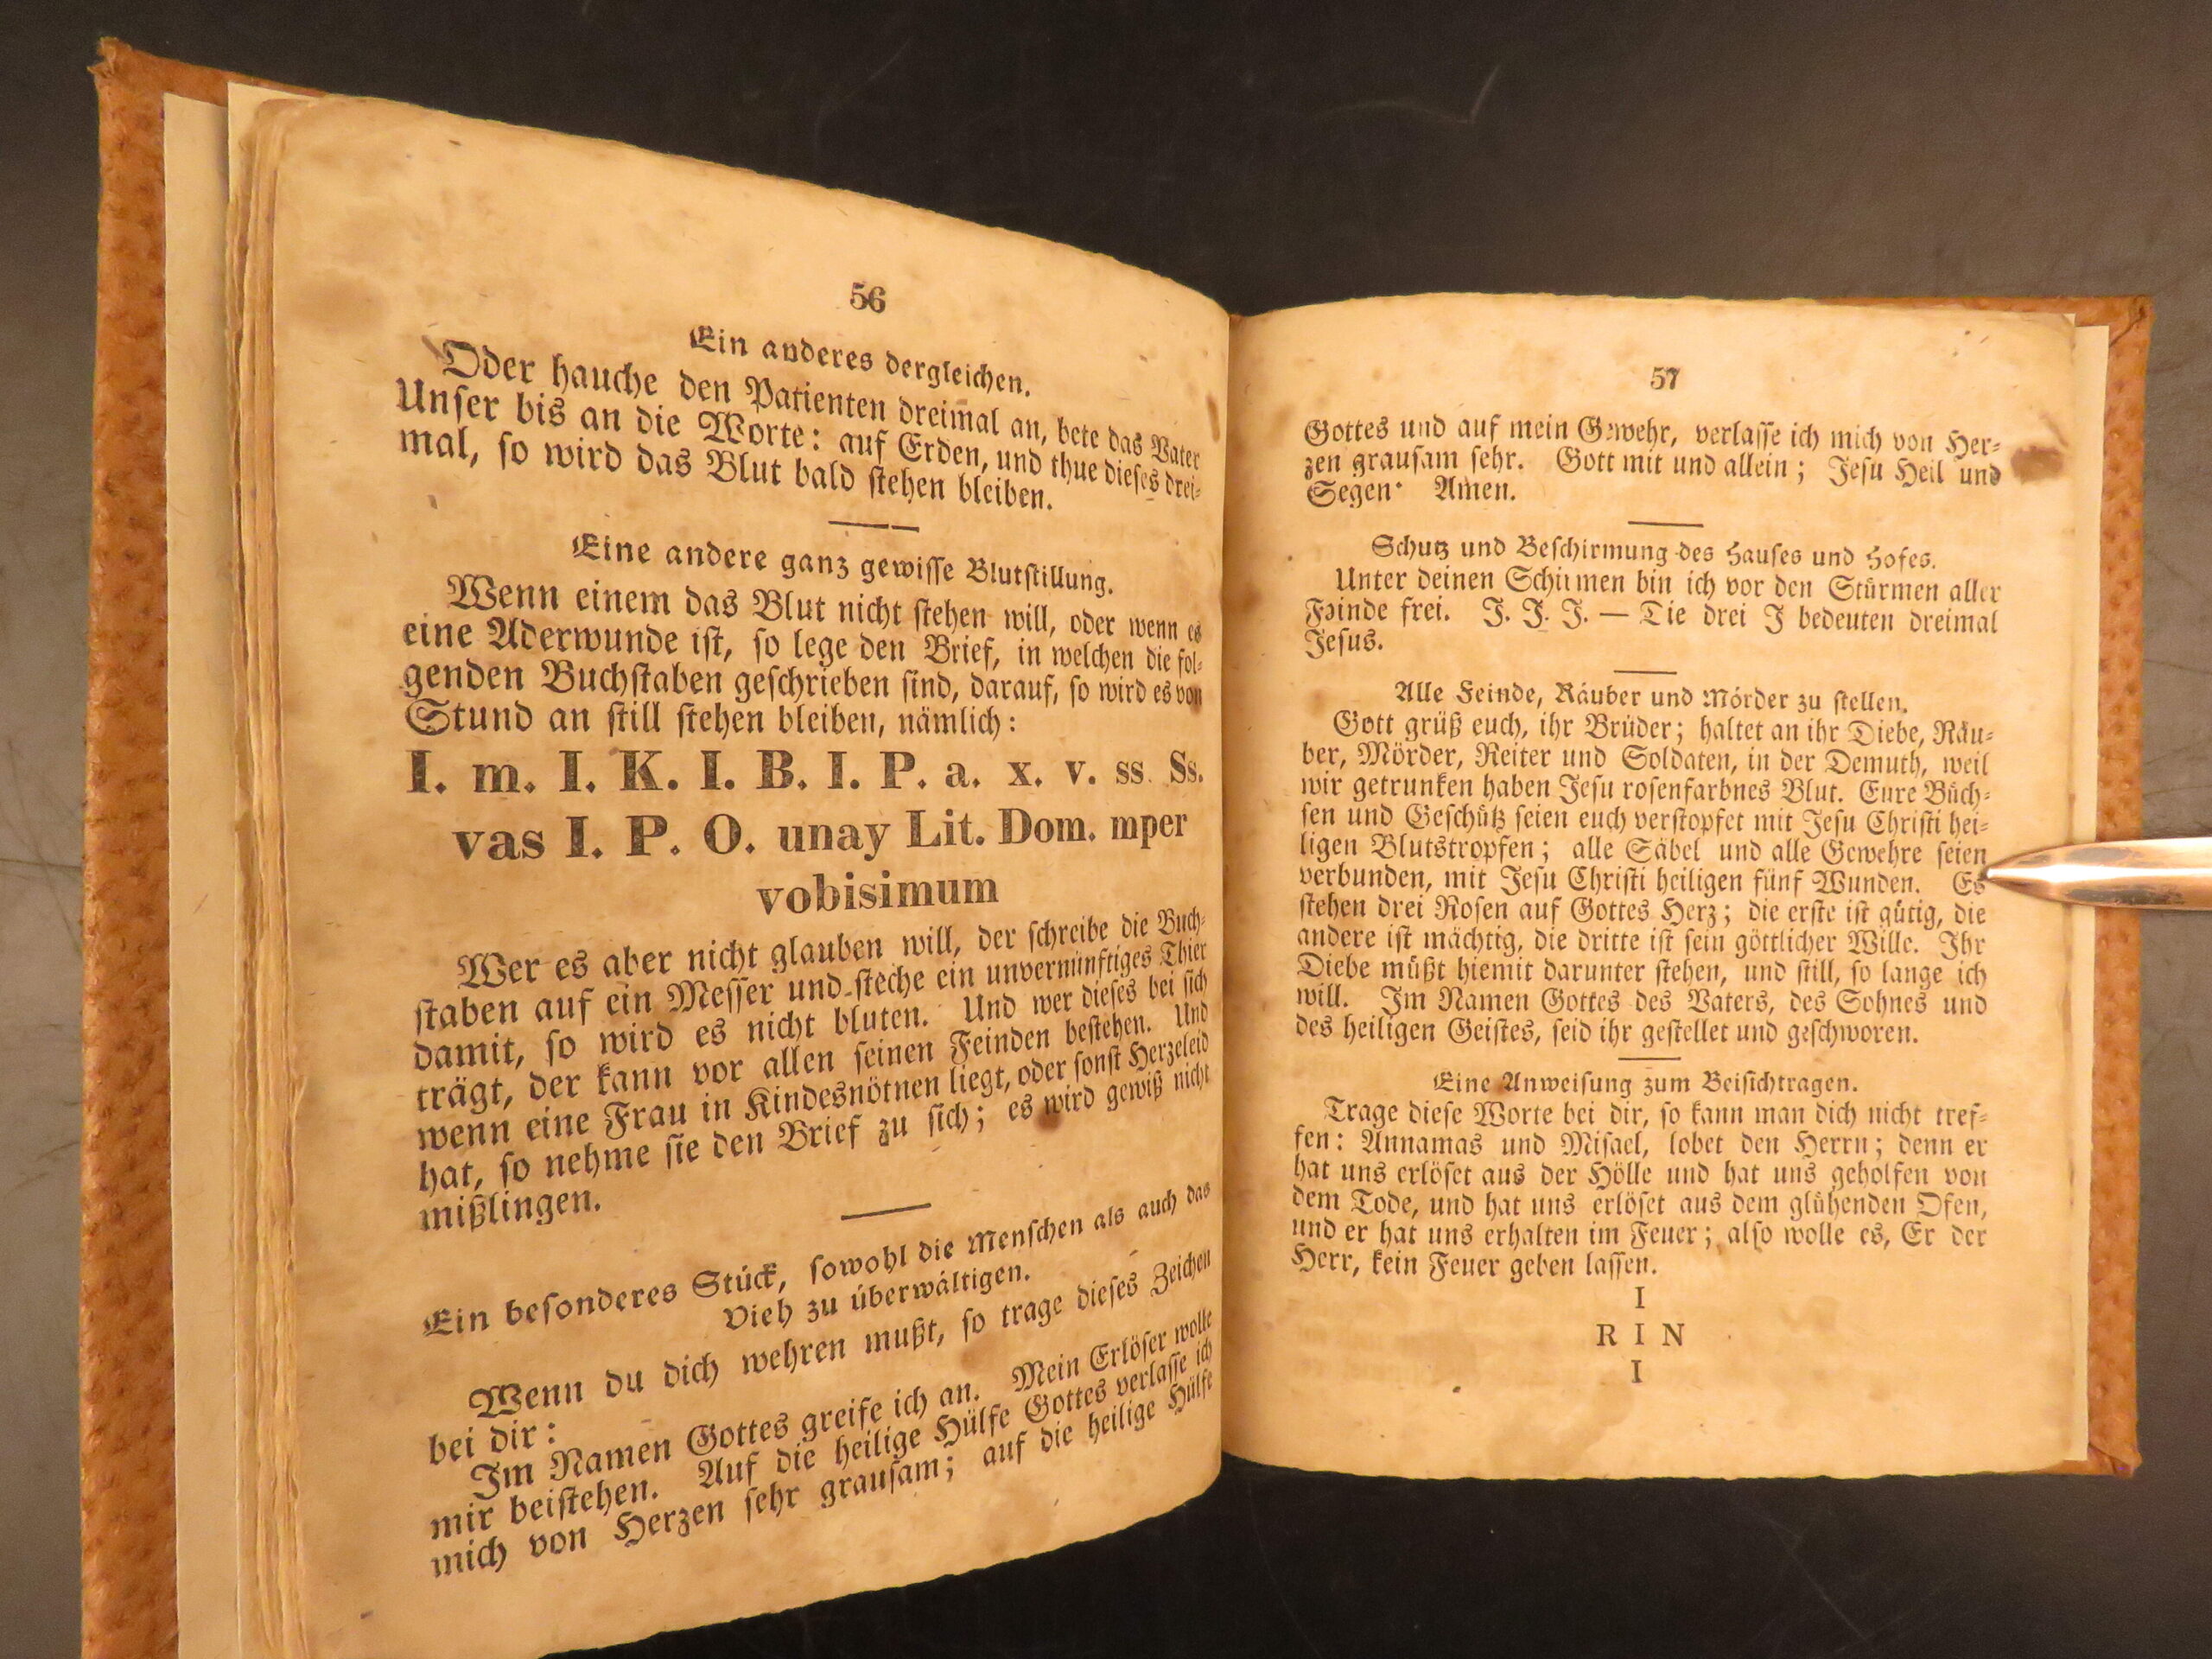 56
Ein anderes dergleichen.
Oder hauche den Patienten dreimal an, bete das Vater
Unſer bis an die Worte: auf Erden, und thue dieſes drei-
mal, ſo wird das Blut bald ſtehen bleiben.
Eine andere ganz gewiſſe Blutſtillung.
Wenn einem das Blut nicht ſtehen will, oder wenn es
eine Aderwunde iſt, ſo lege den Brief, in welchen die fol-
genden Buchſtaben geſchrieben ſind, darauf, ſo wird es von
Stund an ſtill ſtehen bleiben, nämlich:
I. m. I. K. I. B. I. P. a. x. v. ss. Ss.
vas I. P. O. unay Lit. Dom. mper
vobisimum
Wer es aber nicht glauben will, der ſchreibe die Buch-
ſtaben auf ein Meſſer und ſteche ein unvernünftiges Thier
damit, ſo wird es nicht bluten. Und wer dieſes bei ſich
trägt, der kann vor allen ſeinen Feinden beſtehen. Und
wenn eine Frau in Kindesnötnen liegt, oder ſonſt Herzeleid
hat, ſo nehme ſie den Brief zu ſich; es wird gewiß nicht
mißlingen.
Ein beſonderes Stück, ſowohl die Menſchen als auch das
Vieh zu überwältigen.
Wenn du dich wehren mußt, ſo trage dieſes Zeichen
bei dir:
Im Namen Gottes greife ich an. Mein Erlöſer wolle
mir beiſtehen. Auf die heilige Hülfe Gottes verlaſſe ich
mich von Herzen ſehr grauſam; auf die heilige Hülfe
57
Gottes und auf mein Gewehr, verlaſſe ich mich von Her-
zen grauſam ſehr. Gott mit und allein; Jeſu Heil und
Segen· Amen.
Schutz und Beſchirmung des Hauſes und Hofes.
Unter deinen Schirmen bin ich vor den Stürmen aller
Feinde frei. J. J. J. — Die drei J bedeuten dreimal
Jeſus.
Alle Feinde, Räuber und Mörder zu ſtellen.
Gott grüß euch, ihr Brüder; haltet an ihr Diebe, Räu-
ber, Mörder, Reiter und Soldaten, in der Demuth, weil
wir getrunken haben Jeſu roſenfarbnes Blut. Eure Büch-
ſen und Geſchütz ſeien euch verſtopfet mit Jeſu Chriſti hei-
ligen Blutstropfen; alle Säbel und alle Gewehre ſeien
verbunden, mit Jeſu Chriſti heiligen fünf Wunden. Es
ſtehen drei Roſen auf Gottes Herz; die erſte iſt gütig, die
andere iſt mächtig, die dritte iſt ſein göttlicher Wille. Ihr
Diebe müßt hiemit darunter ſtehen, und ſtill, ſo lange ich
will. Im Namen Gottes des Vaters, des Sohnes und
des heiligen Geiſtes, ſeid ihr geſtellet und geſchworen.
Eine Anweiſung zum Beiſichtragen.
Trage dieſe Worte bei dir, ſo kann man dich nicht tref-
fen: Annamas und Miſael, lobet den Herrn; denn er
hat uns erlöſet aus der Hölle und hat uns geholfen von
dem Tode, und hat uns erlöſet aus dem glühenden Ofen,
und er hat uns erhalten im Feuer; alſo wolle es, Er der
Herr, kein Feuer geben laſſen.
I
R I N
I